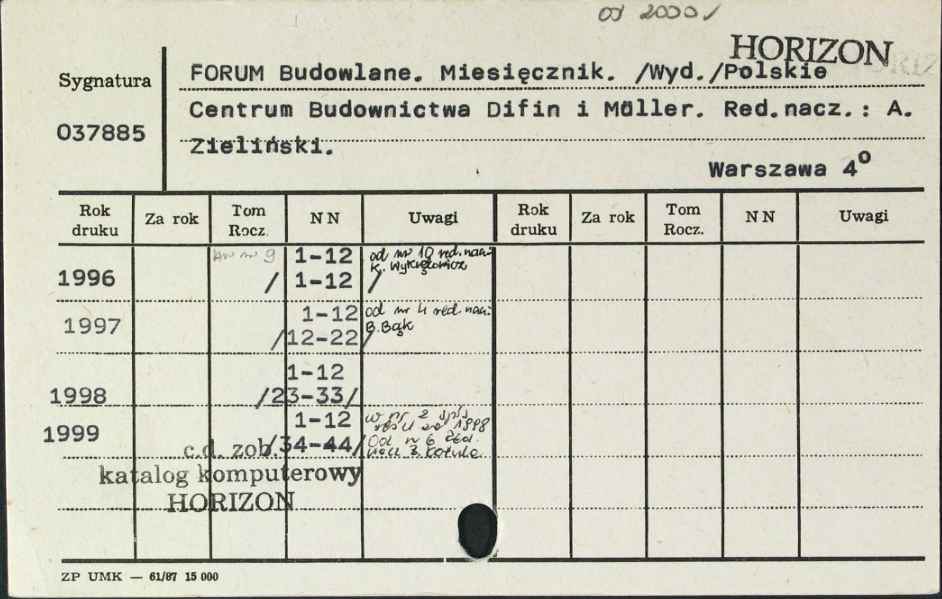 od 2000
HORIZON
Sygnatura
037885
FORUM Budowlane. Miesięcznik. /Wyd./Polskie
Centrum Budownictwa Difin i Müller. Red.nacz.: A.
Zieliński.
Warszawa 4º
Rok druku Za rok Tom Rocz. NN Uwagi Rok druku Za rok Tom Rocz. NN Uwagi
1996 nr 9 1-12 / 1-12 / od nr 10 red. nacz.
K.
1997 1-12 /12-22/ od nr 4 red. nacz.
B. Bąk
1998 1-12 /23-33/
1999 1-12 /34-44/ w nr 2 spis
treści za 1998
Od n 6
c.d. zob.
katalog komputerowy
HORIZON
ZP UMK — 61/87 15 000